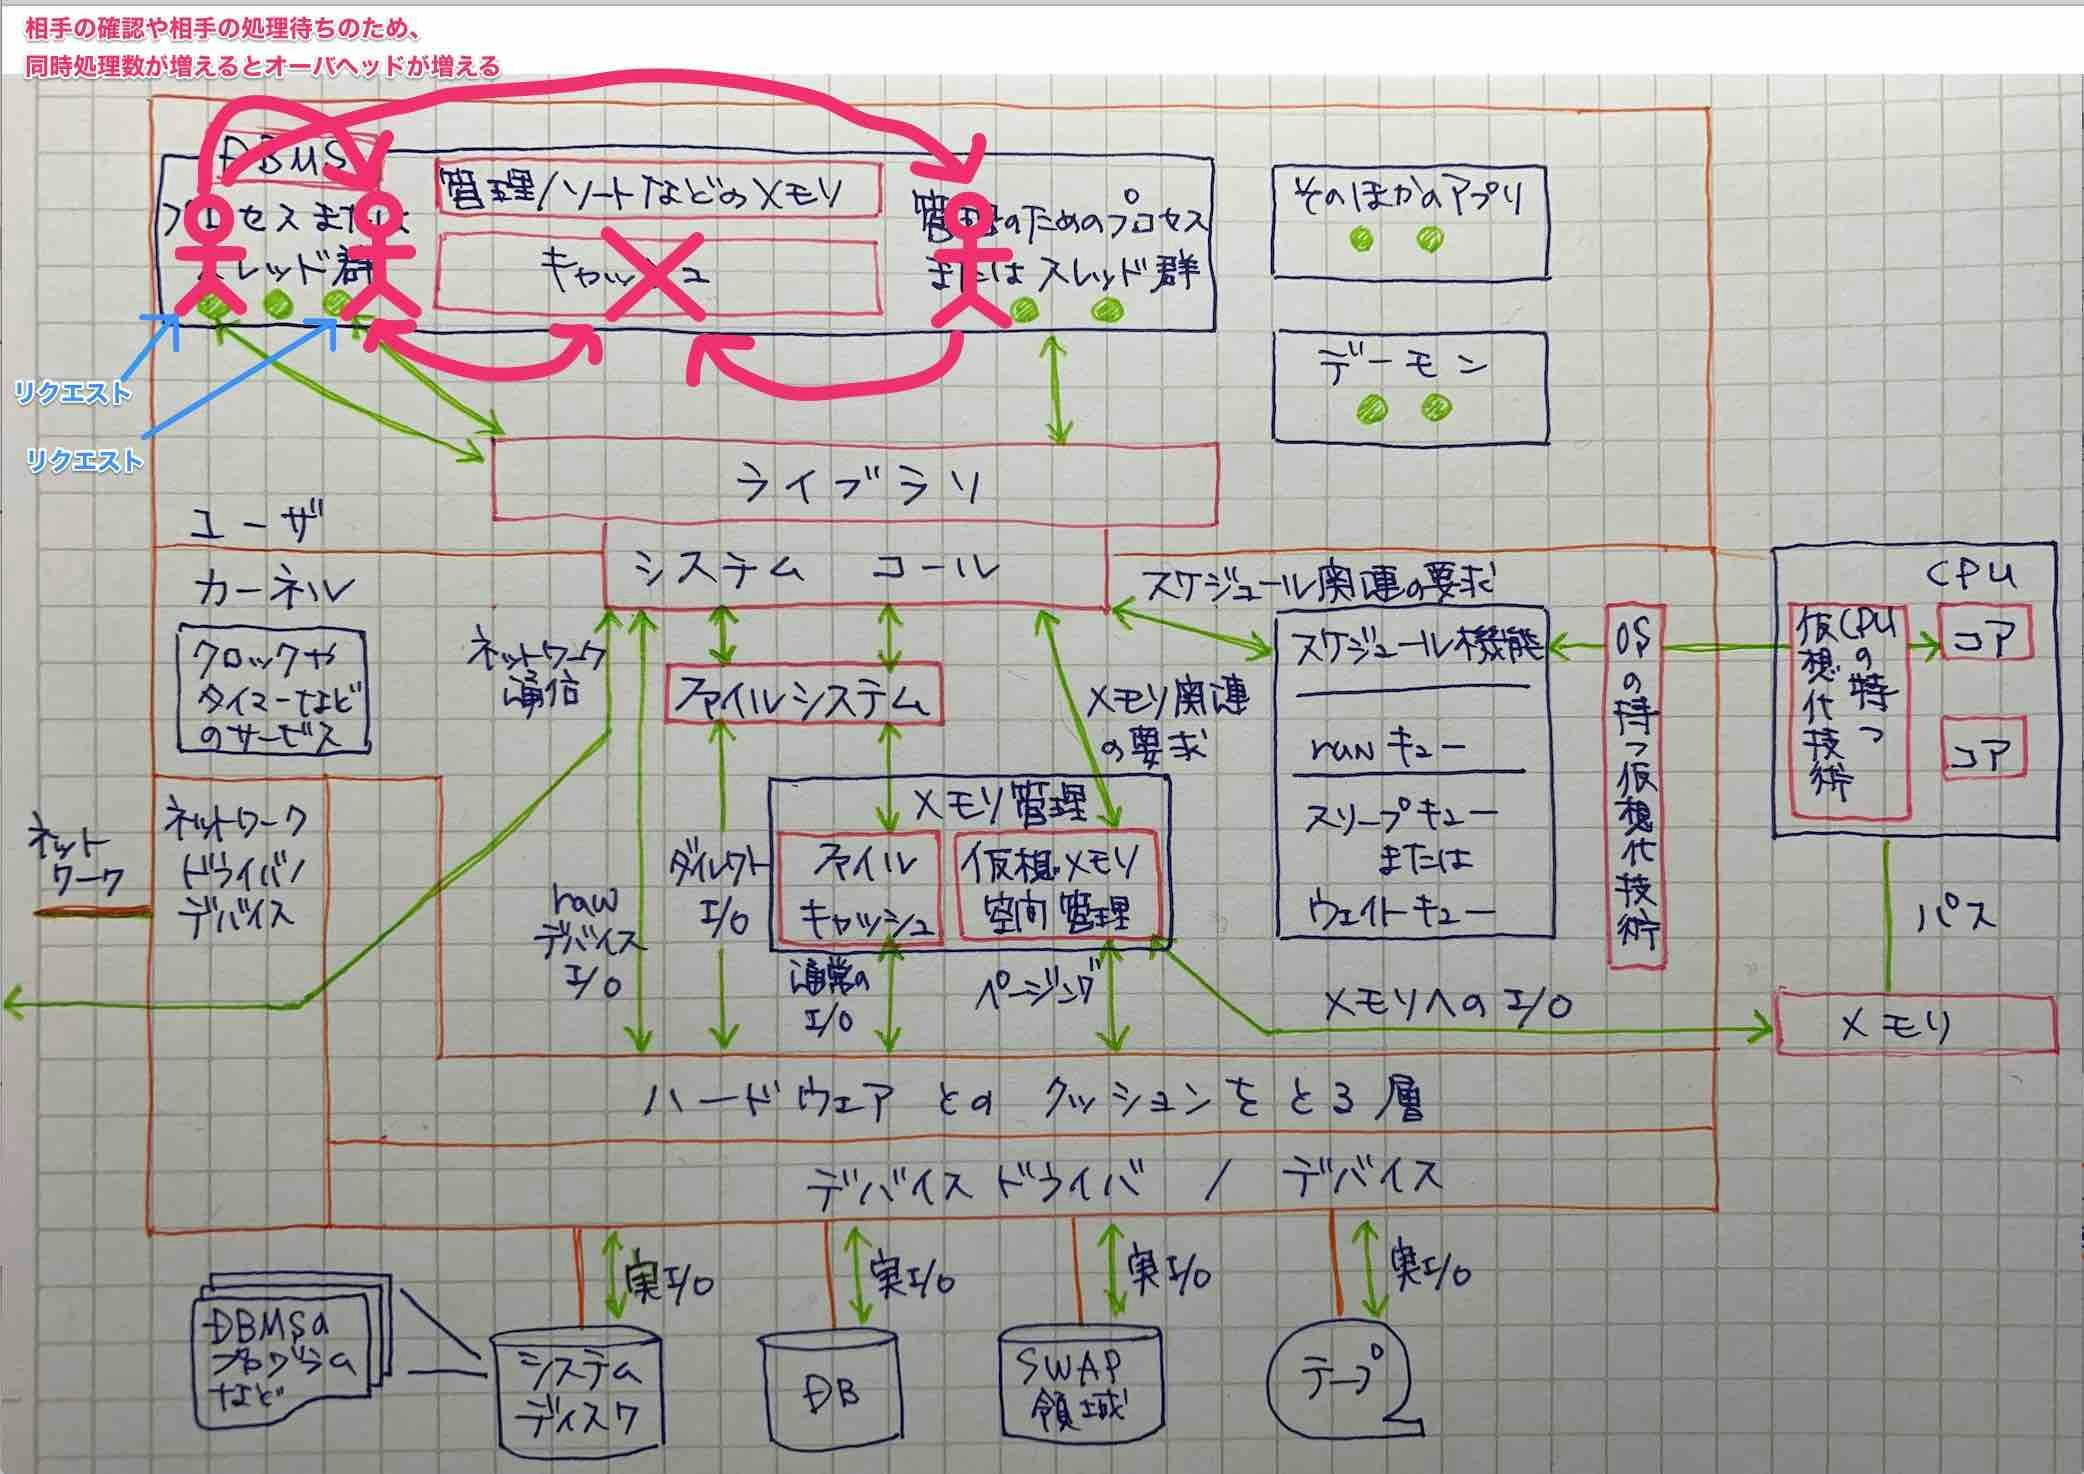 相手の確認や相手の処理待ちのため、
同時処理数が増えるとオーバヘッドが増える
DBMS
プロセスまたは
スレッド群
管理/ソートなどのメモリ
キャッシュ
管理のためのプロセス
またはスレッド群
そのほかのアプリ
デーモン
リクエスト
リクエスト
ライブラリ
ユーザ
カーネル
システム コール
スケジュール関連の要求
クロックや
タイマーなど
のサービス
ネットワーク
通信
ファイルシステム
メモリ関連
の要求
スケジュール機能
runキュー
スリープキュー
または
ウェイトキュー
OSの持つ仮想化技術
CPU
CPUの持つ
仮想化技術
コア
コア
バス
メモリ
メモリ管理
ファイル
キャッシュ
仮想メモリ
空間管理
ネット
ワーク
ネットワーク
ドライバ/
デバイス
raw
デバイス
I/O
ダイレクト
I/O
通常の
I/O
ページング
メモリへのI/O
ハードウェア との クッションをとる層
デバイスドライバ / デバイス
実I/O
実I/O
実I/O
実I/O
DBMSの
プログラム
など
システム
ディスク
DB
SWAP
領域
テープ